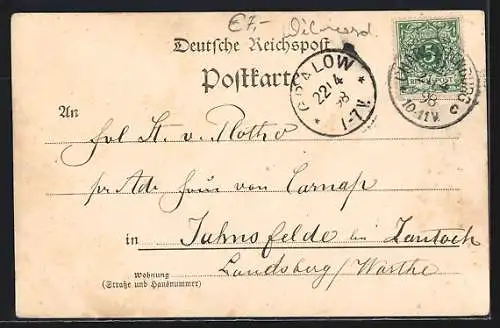 €7,-
Deutsche Reichspost
Postkarte
GRALOW
22/4
98
1-7V.
5
98
10-11V.
An
Frl. St. v. Plotho
pr. Adr. Frau von Carnap
in Jahnsfelde bei Zantoch
Landsberg/Warthe
Wohnung
(Straße und Hausnummer)